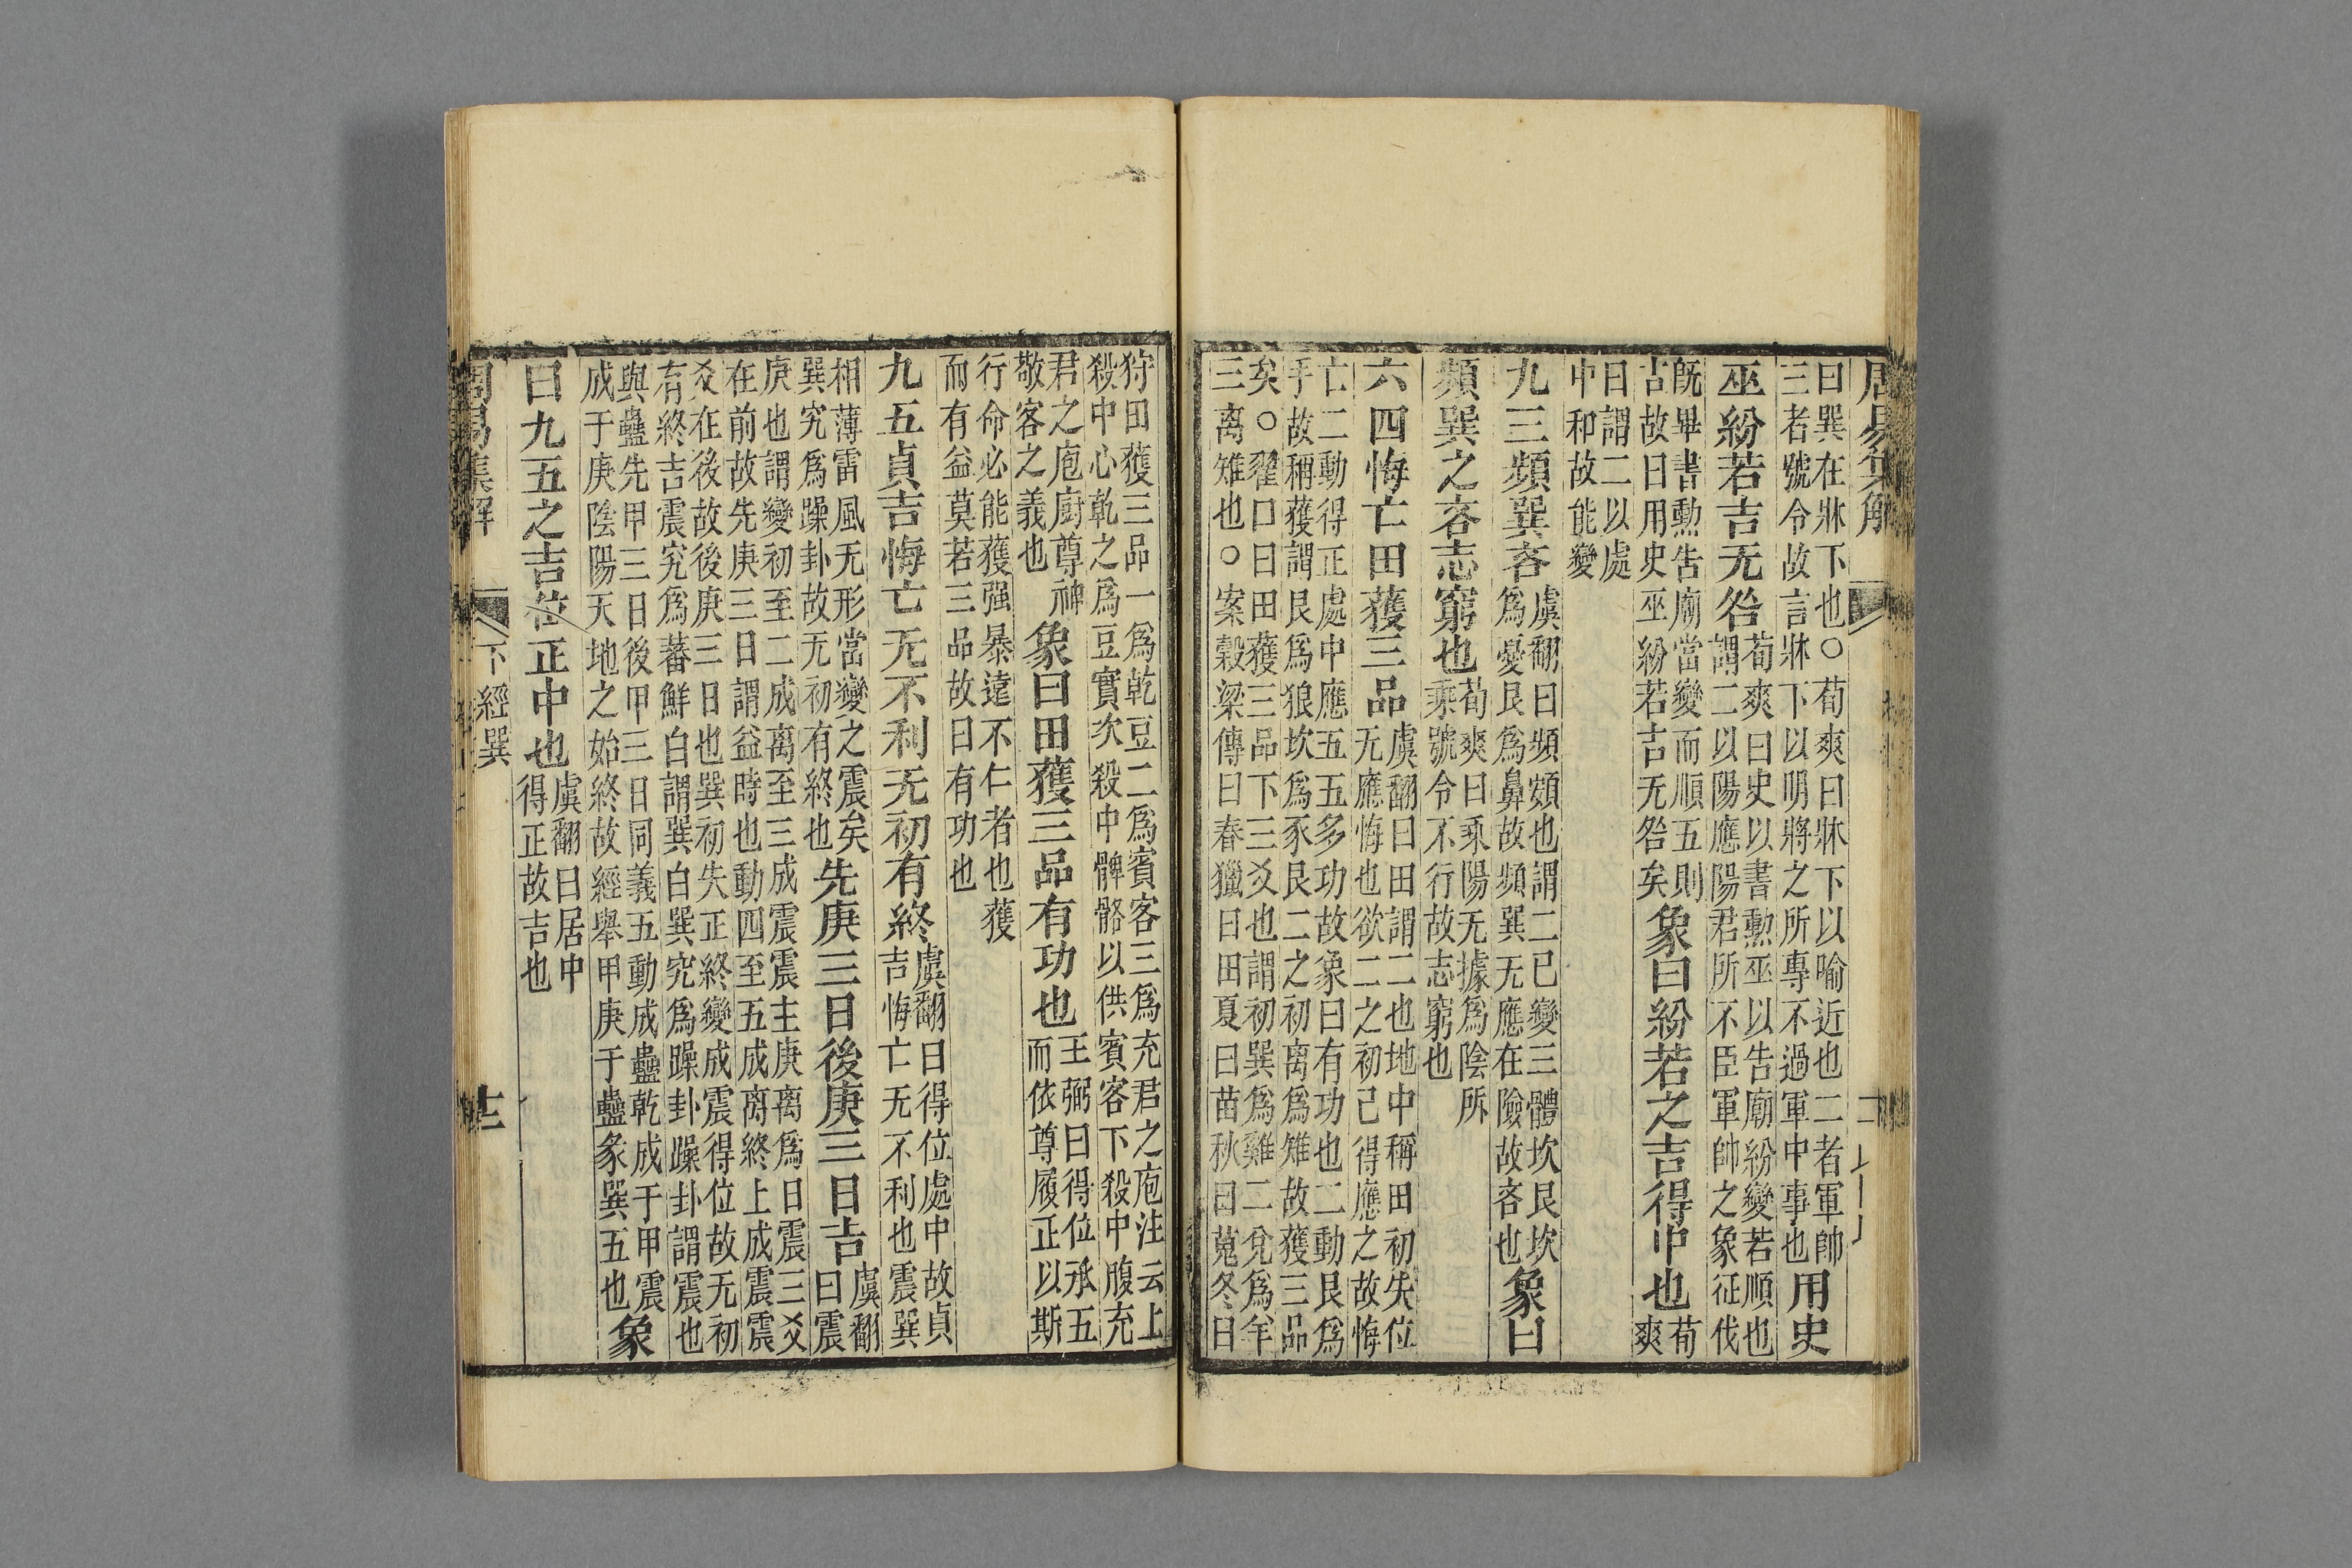 周易集解
曰巽在牀下也○荀爽曰牀下以喻近也二者軍帥
三者號令故言牀下以明將之所專不過軍中事也用史
巫紛若吉无咎荀爽曰史以書勳巫以告廟紛變若順也
謂二以陽應陽君所不臣軍帥之象征伐
旣畢書勳告廟當變而順五則
古故曰用史巫紛若吉无咎矣象曰紛若之吉得中也荀爽
曰謂二以處
中和故能變
九三頻巽吝虞翻曰頻頞也謂二已變三體坎艮坎
爲憂艮爲鼻故頻巽无應在險故吝也象曰
頻巽之吝志窮也荀爽曰乘陽无據爲陰所
乘號令不行故志窮也
六四悔亡田獲三品虞翻曰田謂二也地中稱田初失位
无應悔也欲二之初己得應之故悔
亡二動得正處中應五五多功故象曰有功也二動艮爲
手故稱獲謂艮爲狼坎爲豕艮二之初离爲雉故獲三品
矣○翟口曰田獲三品下三爻也謂初巽爲雞二兌爲羊
三离雉也○案穀梁傳曰春獵曰田夏曰苗秋曰蒐冬曰
狩田獲三品一爲乾豆二爲賓客三爲充君之庖注云上
殺中心乾之爲豆實次殺中髀骼以供賓客下殺中腹充
君之庖廚尊神
敬客之義也象曰田獲三品有功也王弼曰得位承五
而依尊履正以斯
行命必能獲强暴遠不仁者也獲
而有益莫若三品故曰有功也
九五貞吉悔亡无不利无初有終虞翻曰得位處中故貞
吉悔亡无不利也震巽
相薄雷風无形當變之震矣
巽究爲躁卦故无初有終也先庚三日後庚三日吉虞翻
曰震
庚也謂變初至二成离至三成震震主庚离爲日震三爻
在前故先庚三日謂益時也動四至五成离終上成震震
爻在後故後庚三日也巽初失正終變成震得位故无初
有終吉震究爲蕃鮮白謂巽白巽究爲躁卦躁卦謂震也
與蠱先甲三日後甲三日同義五動成蠱乾成于甲震
成于庚陰陽天地之始終故經舉甲庚于蠱彖巽五也象
曰九五之吉位正中也虞翻曰居中
得正故吉也
周易集解 下經巽